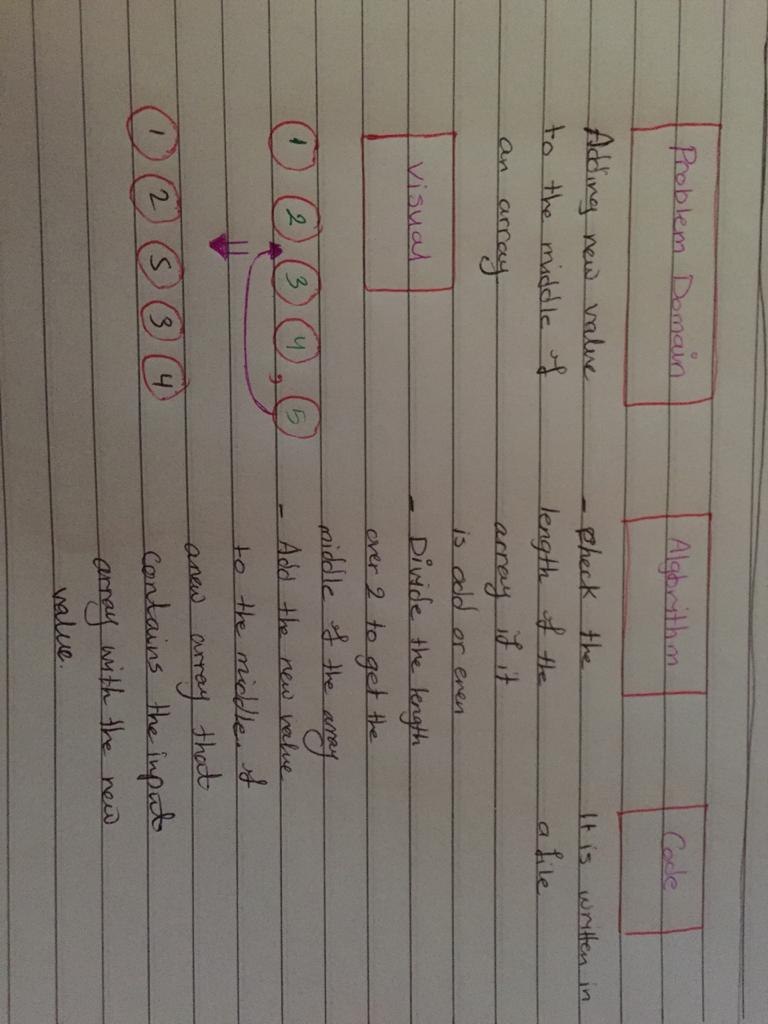 Problem Domain
Adding new value
to the middle of
an array
Visual
1 2 , 3 4 , 5
1 2 5 3 4
Algorithm
- check the
length of the
array if it
is odd or even
- Divide the length
over 2 to get the
middle of the array
- Add the new value
to the middle of
a new array that
contains the input
array with the new
value.
Code
It is written in
a file